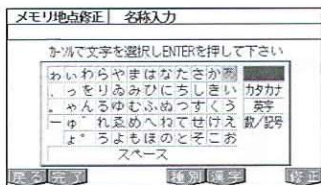 メモリ地点修正 名称入力
ｶｰｿﾙで文字を選択しENTERを押して下さい
ゎぃわらやまはなたさかあ
、っをりゐみひにちしきい カタカナ
。ゃんるゆむふぬつすくう 英字
ーゅ゛れゑめへねてせけえ 数/記号
ょ゜ろよもほのとそこお
スペース
戻る 完了 種別 漢字 修正